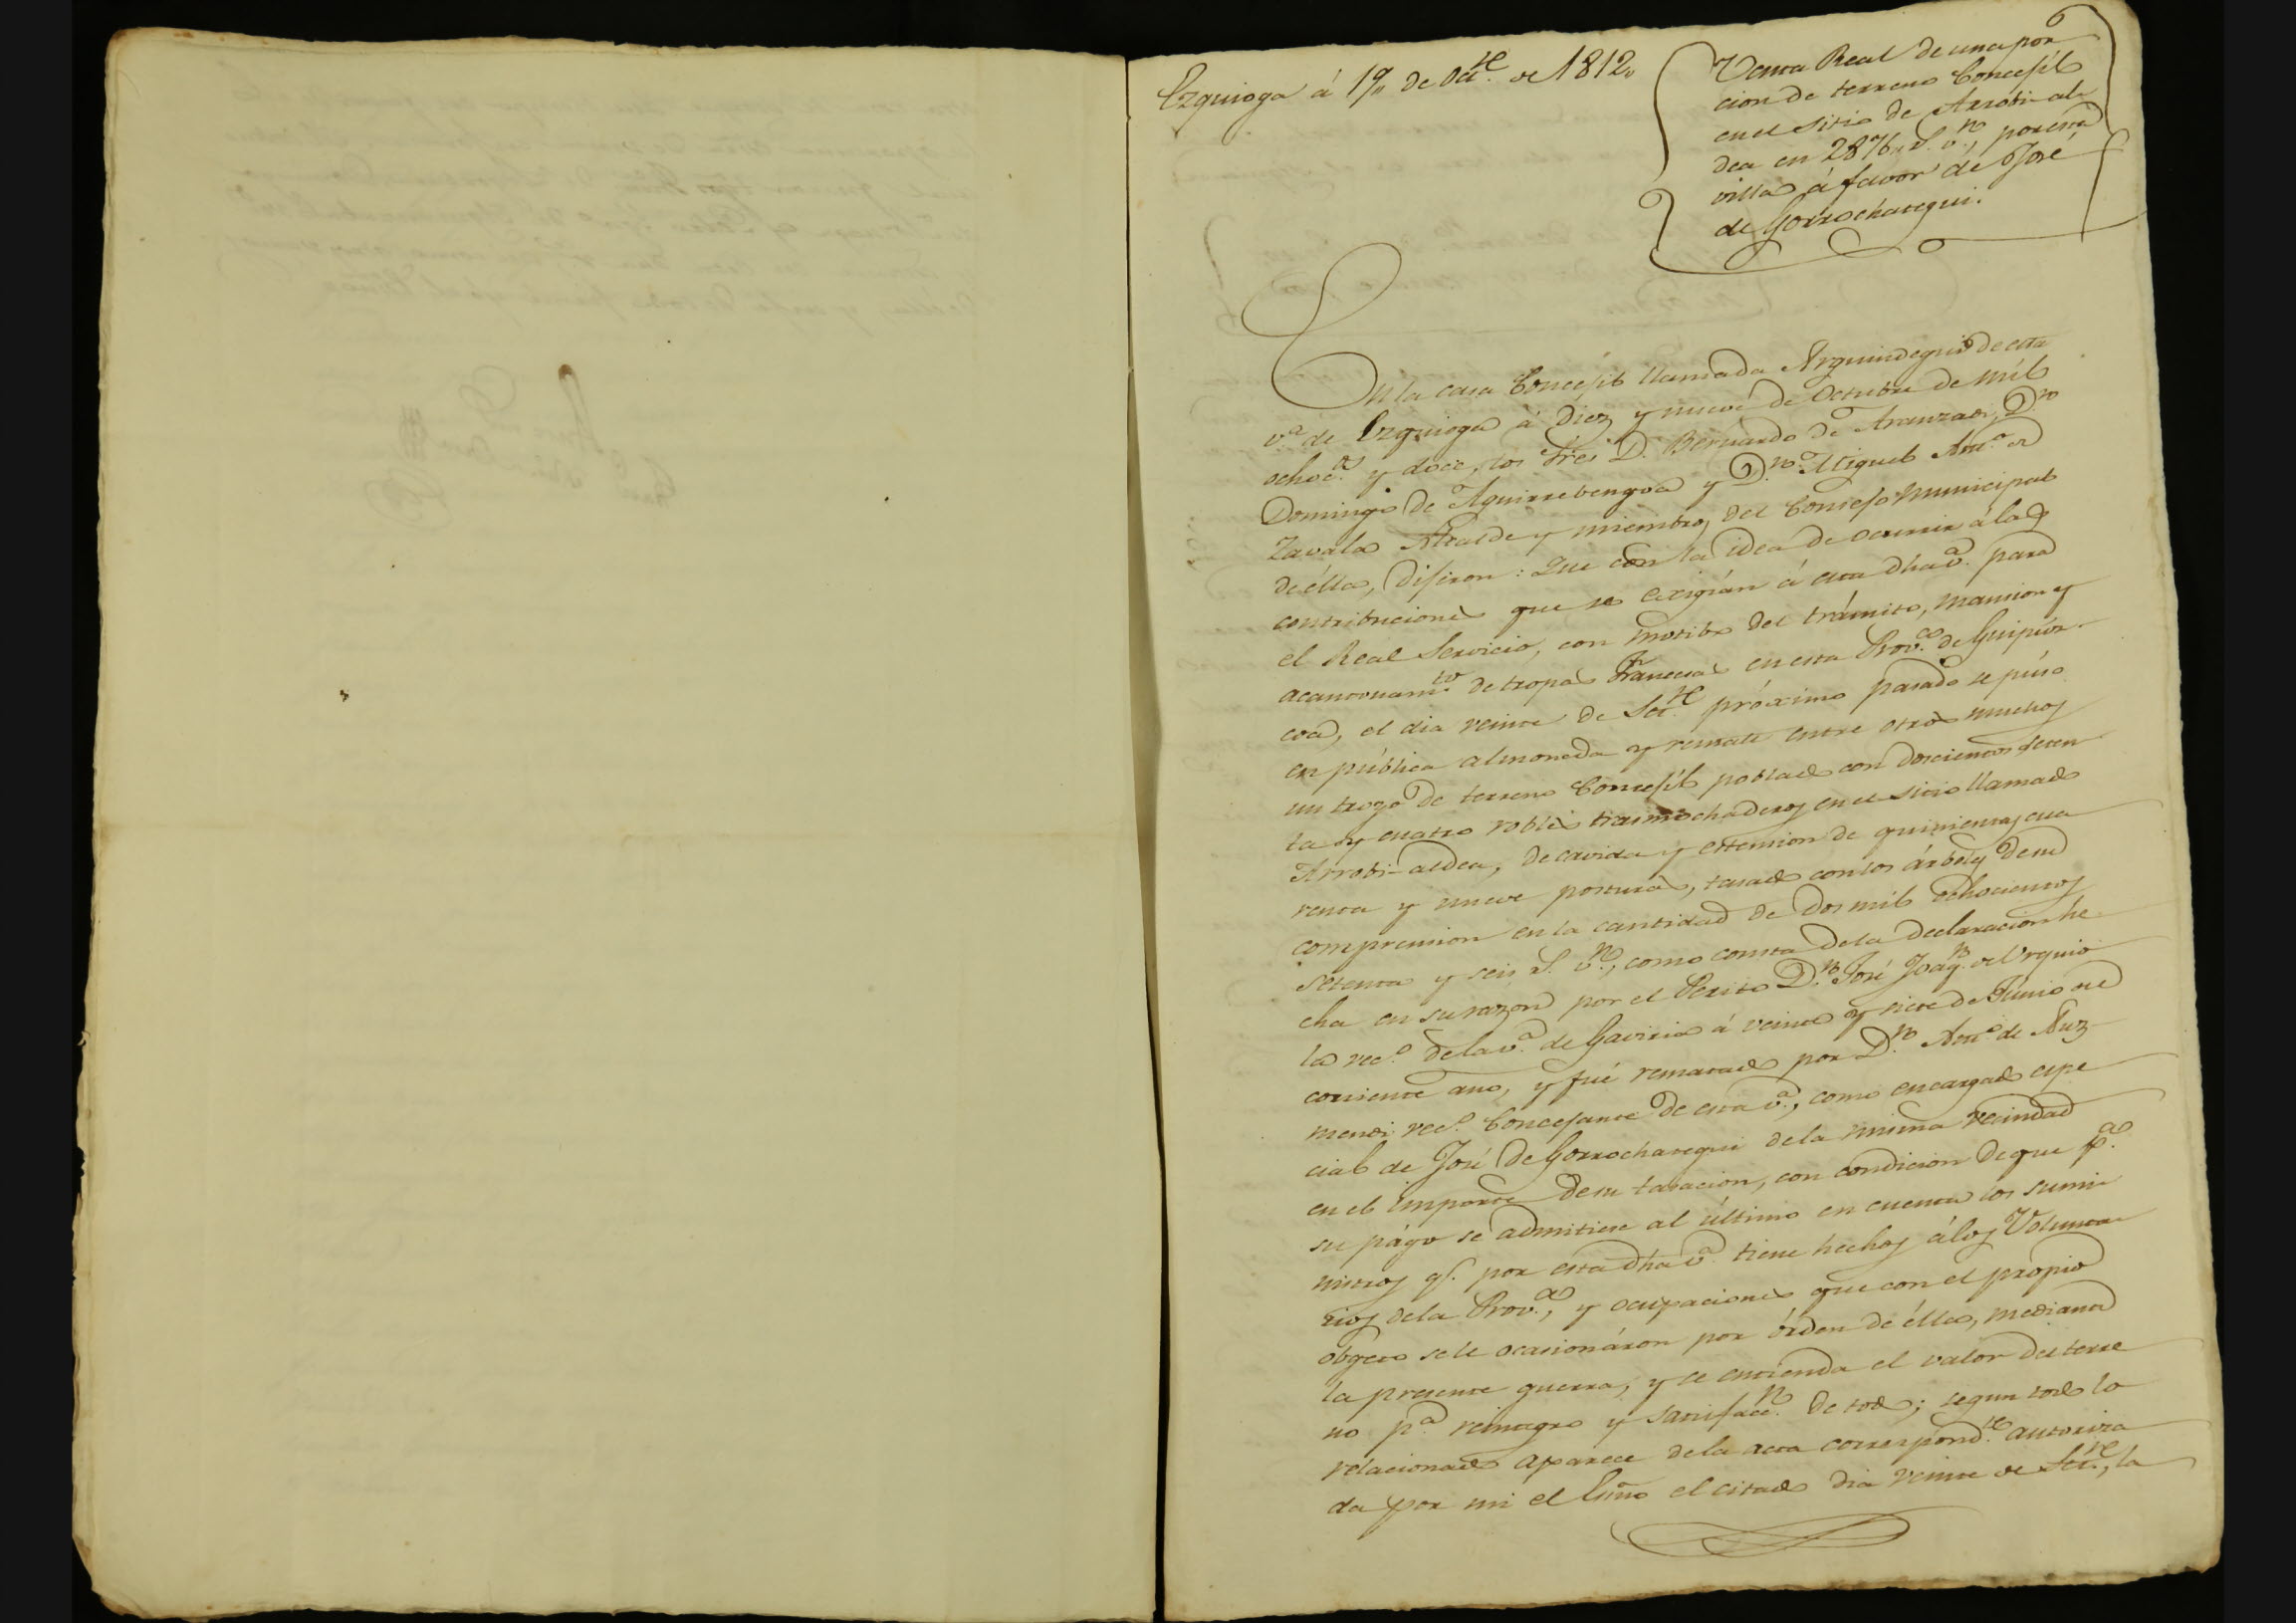 Ezquioga á 19,, de Oct.re de 1812,,
Venta Real de una por
cion de terreno Concejíl
en el sitio de Arrobi-al-
dea en 2876,, r.s v.n, por esta
villa á favor de José
de Gorrochategui.
En la casa Concejíl llamada Arguindegui de esta
v.a de Ezquioga á Diez y nueve de Octubre de míl
ochoc.s y doce, los Sres D. Bernardo de Aranzadi, D.n
Domingo de Aguirrebengoa y D.n Miguel Ant.o de
Zavala Alcalde y miembros del Consejo Municipal
de élla, Dijeron: Que con la idea de ocurrir á las
contribuciones que se exigían á esta dha v.a para
el Real Servicio, con motibo del tránsito, mansion y
acantonam.to de tropas Francesas en esta Prov.a de Guipúz-
coa, el dia veinte de Set.re próximo pasado se púso
en pública almoneda y remate entre otros muchos
un trozo de terreno Concejíl poblado con doscientos seten
ta y cuatro robles trasmochaderos en el sitio llamado
Arrobi-aldea, de cavida y estension de quinientas cua
renta y nueve posturas, tasado con los árboles de su
compreension en la cantidad de Dos míl ochocientos
setenta y seis r.s v.n, como consta de la declaracion he
cha en su razon por el Perito D.n José Joaq.n de Urquio
la vec.o de la v.a de Gaviria á veinte y siete de Junio de
corriente año, y fué rematado por D.n Ant.o de Auz-
mendi vec.o Concejante de esta v.a, como encargado espe
cial de José de Gorrochategui de la misma vecindad
en el importe de su tasacion, con condicion de que p.a
su págo se admitiese al último en cuenta los sumi
nistros q.e por esta dha v.a tiene hechos á los Volunta
rios de la Prov.a, y ocupaciones que con el propio
obgeto se le ocasionáron por órden de élla, mediante
la presente guerra, y se entienda el valor del terre
no p.a reintegro y satisfacc.n de todo; segun todo lo
relacionado aparece de la acta correspond.te autoriza
da por mi el Essno el citado dia veinte de Set.re, la